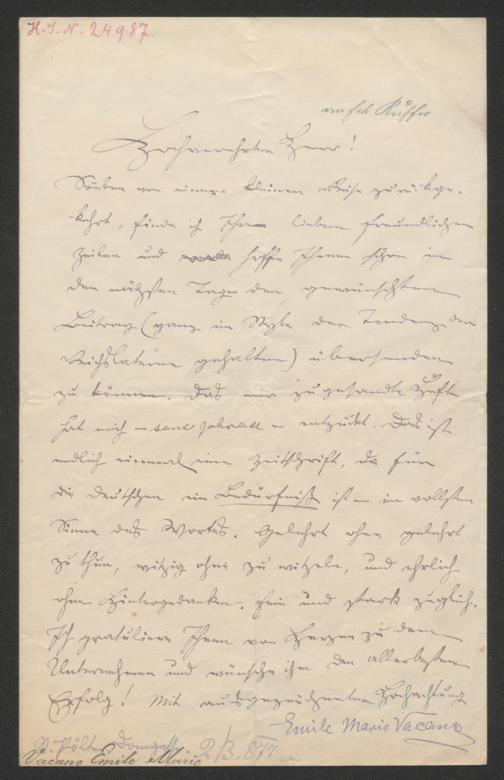 H. I. N. 24987.
Hochverehrter Herr!
Soeben von einer kleinen Reise zurückge-
kehrt, finde ich Ihre lieben freundlichen
Zeilen und hoffe Ihnen schon in
den nächsten Tagen den gewünschten
Beitrag (ganz im Style der Tendenz der
Reichslaterne gehalten) übersenden
zu können. Das mir zugesandte Heft
hat mich – sans phrase – entzückt. Das ist
endlich einmal eine Zeitschrift, die für
die Deutschen ein Bedürfniß ist – im vollsten
Sinne des Wortes. Gelehrt ohne gelehrt
zu thun, witzig ohne zu witzeln, und ehrlich
ohne Hintergedanken. Fein und stark zugleich.
Ich gratuliere Ihnen von Herzen zu dem
Unternehmen und wünsche ihm den allerbesten
Erfolg! Mit ausgezeichneter Hochachtung
Emile Mario Vacano
St. Pölten, Domgasse 2/3. 877
Vacano Emile Mario